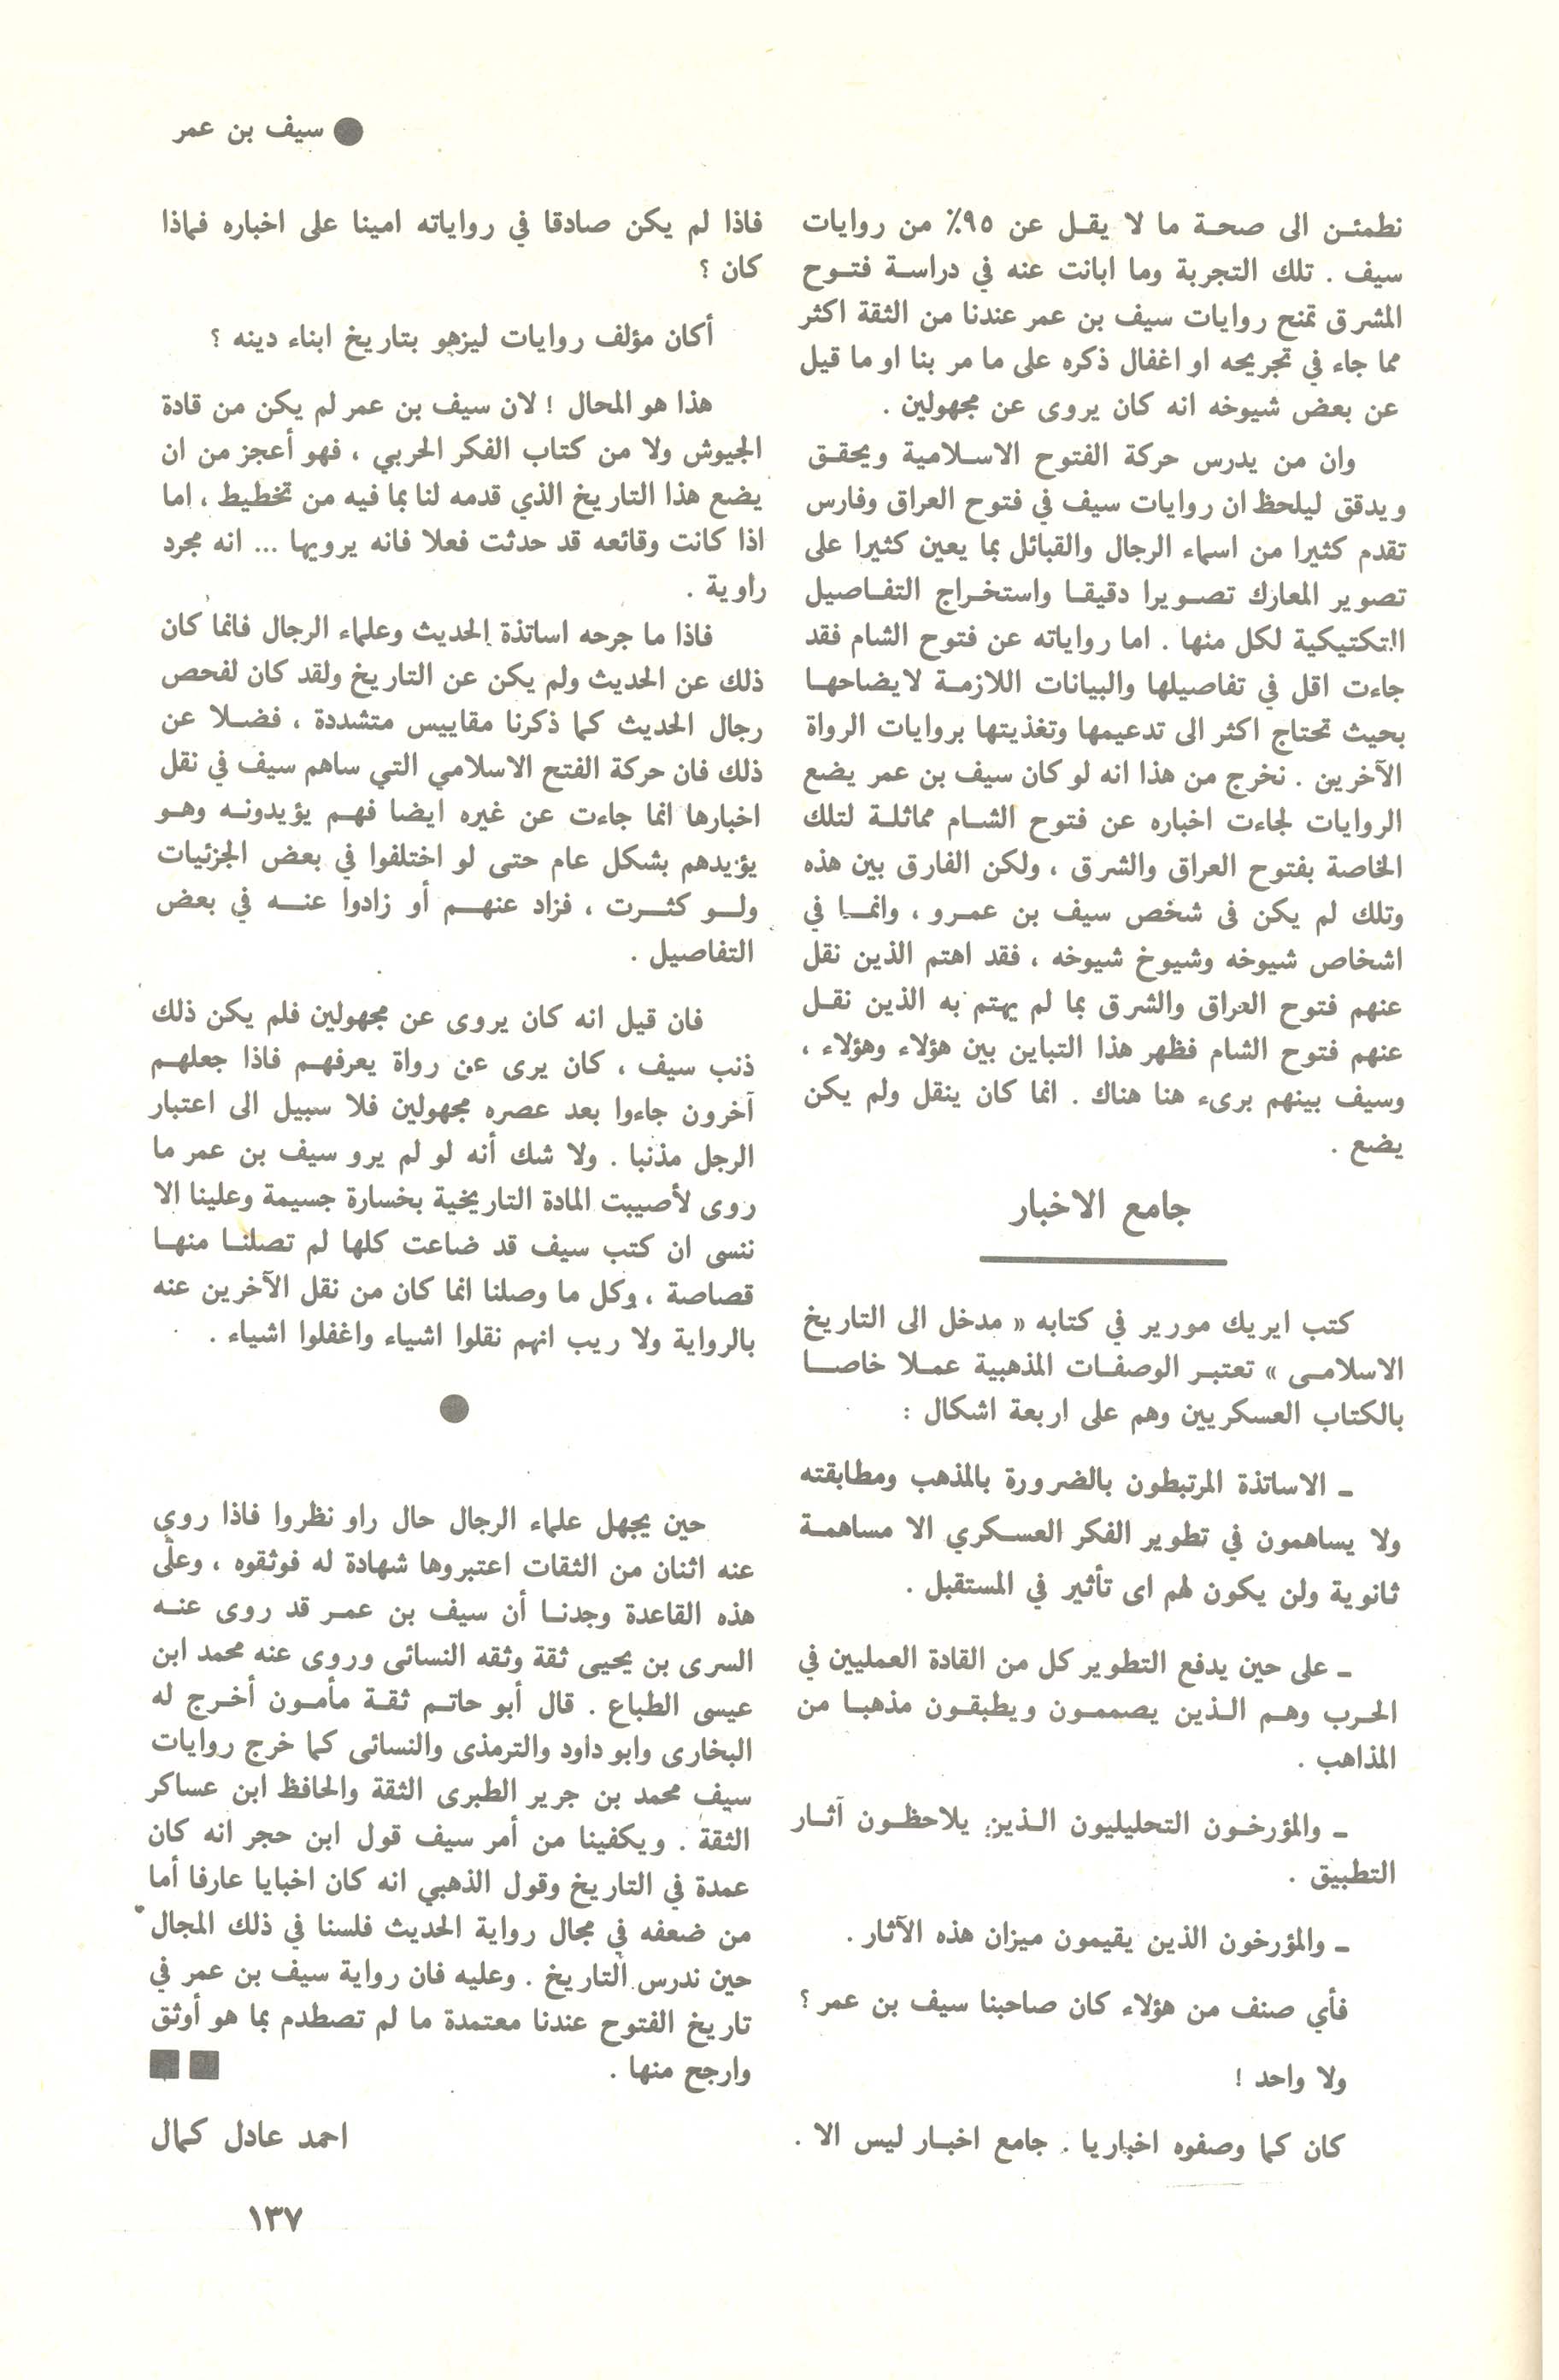 ● سيف بن عمر
نطمئن الى صحة ما لا يقل عن ٩٥٪ من روايات
سيف . تلك التجربة وما ابانت عنه في دراسة فتوح
المشرق تمنح روايات سيف بن عمر عندنا من الثقة اكثر
مما جاء في تجريحه او اغفال ذكره على ما مر بنا او ما قيل
عن بعض شيوخه انه كان يروى عن مجهولين .
وان من يدرس حركة الفتوح الاسلامية ويحقق
ويدقق ليلحظ ان روايات سيف في فتوح العراق وفارس
تقدم كثيرا من اسماء الرجال والقبائل بما يعين كثيرا على
تصوير المعارك تصويرا دقيقا واستخراج التفاصيل
التكتيكية لكل منها . اما رواياته عن فتوح الشام فقد
جاءت اقل في تفاصيلها والبيانات اللازمة لايضاحها
بحيث تحتاج اكثر الى تدعيمها وتغذيتها بروايات الرواة
الآخرين . نخرج من هذا انه لو كان سيف بن عمر يضع
الروايات لجاءت اخباره عن فتوح الشام مماثلة لتلك
الخاصة بفتوح العراق والشرق ، ولكن الفارق بين هذه
وتلك لم يكن فى شخص سيف بن عمرو ، وانما في
اشخاص شيوخه وشيوخ شيوخه ، فقد اهتم الذين نقل
عنهم فتوح العراق والشرق بما لم يهتم به الذين نقل
عنهم فتوح الشام فظهر هذا التباين بين هؤلاء وهؤلاء ،
وسيف بينهم برىء هنا هناك . انما كان ينقل ولم يكن
يضع .
جامع الاخبار
كتب ايريك مورير في كتابه « مدخل الى التاريخ
الاسلامى » تعتبر الوصفات المذهبية عملا خاصا
بالكتاب العسكريين وهم على اربعة اشكال :
ـ الاساتذة المرتبطون بالضرورة بالمذهب ومطابقته
ولا يساهمون في تطوير الفكر العسكري الا مساهمة
ثانوية ولن يكون لهم اى تأثير في المستقبل .
ـ على حين يدفع التطوير كل من القادة العمليين في
الحرب وهم الذين يصممون ويطبقون مذهبا من
المذاهب .
ـ والمؤرخون التحليليون الذين يلاحظون آثار
التطبيق .
ـ والمؤرخون الذين يقيمون ميزان هذه الآثار .
فأي صنف من هؤلاء كان صاحبنا سيف بن عمر ؟
ولا واحد !
كان كما وصفوه اخباريا . جامع اخبار ليس الا .
فاذا لم يكن صادقا في رواياته امينا على اخباره فماذا
كان ؟
أكان مؤلف روايات ليزهو بتاريخ ابناء دينه ؟
هذا هو المحال ! لان سيف بن عمر لم يكن من قادة
الجيوش ولا من كتاب الفكر الحربي ، فهو أعجز من ان
يضع هذا التاريخ الذي قدمه لنا بما فيه من تخطيط ، اما
اذا كانت وقائعه قد حدثت فعلا فانه يرويها ... انه مجرد
راوية .
فاذا ما جرحه اساتذة الحديث وعلماء الرجال فانما كان
ذلك عن الحديث ولم يكن عن التاريخ ولقد كان لفحص
رجال الحديث كما ذكرنا مقاييس متشددة ، فضلا عن
ذلك فان حركة الفتح الاسلامي التي ساهم سيف في نقل
اخبارها انما جاءت عن غيره ايضا فهم يؤيدونه وهو
يؤيدهم بشكل عام حتى لو اختلفوا في بعض الجزئيات
ولو كثرت ، فزاد عنهم أو زادوا عنه في بعض
التفاصيل .
فان قيل انه كان يروى عن مجهولين فلم يكن ذلك
ذنب سيف ، كان يرى عن رواة يعرفهم فاذا جعلهم
آخرون جاءوا بعد عصره مجهولين فلا سبيل الى اعتبار
الرجل مذنبا . ولا شك أنه لو لم يرو سيف بن عمر ما
روى لأصيبت المادة التاريخية بخسارة جسيمة وعلينا الا
ننسى ان كتب سيف قد ضاعت كلها لم تصلنا منها
قصاصة ، وكل ما وصلنا انما كان من نقل الآخرين عنه
بالرواية ولا ريب انهم نقلوا اشياء واغفلوا اشياء .
حين يجهل علماء الرجال حال راو نظروا فاذا روى
عنه اثنان من الثقات اعتبروها شهادة له فوثقوه ، وعلى
هذه القاعدة وجدنا أن سيف بن عمر قد روى عنه
السرى بن يحيى ثقة وثقه النسائى وروى عنه محمد ابن
عيسى الطباع . قال أبو حاتم ثقة مأمون أخرج له
البخارى وابو داود والترمذى والنسائى كما خرج روايات
سيف محمد بن جرير الطبرى الثقة والحافظ ابن عساكر
الثقة . ويكفينا من أمر سيف قول ابن حجر انه كان
عمدة في التاريخ وقول الذهبي انه كان اخبايا عارفا أما
من ضعفه في مجال رواية الحديث فلسنا في ذلك المجال
حين ندرس التاريخ . وعليه فان رواية سيف بن عمر في
تاريخ الفتوح عندنا معتمدة ما لم تصطدم بما هو أوثق
وارجح منها .
احمد عادل كمال
١٣٧